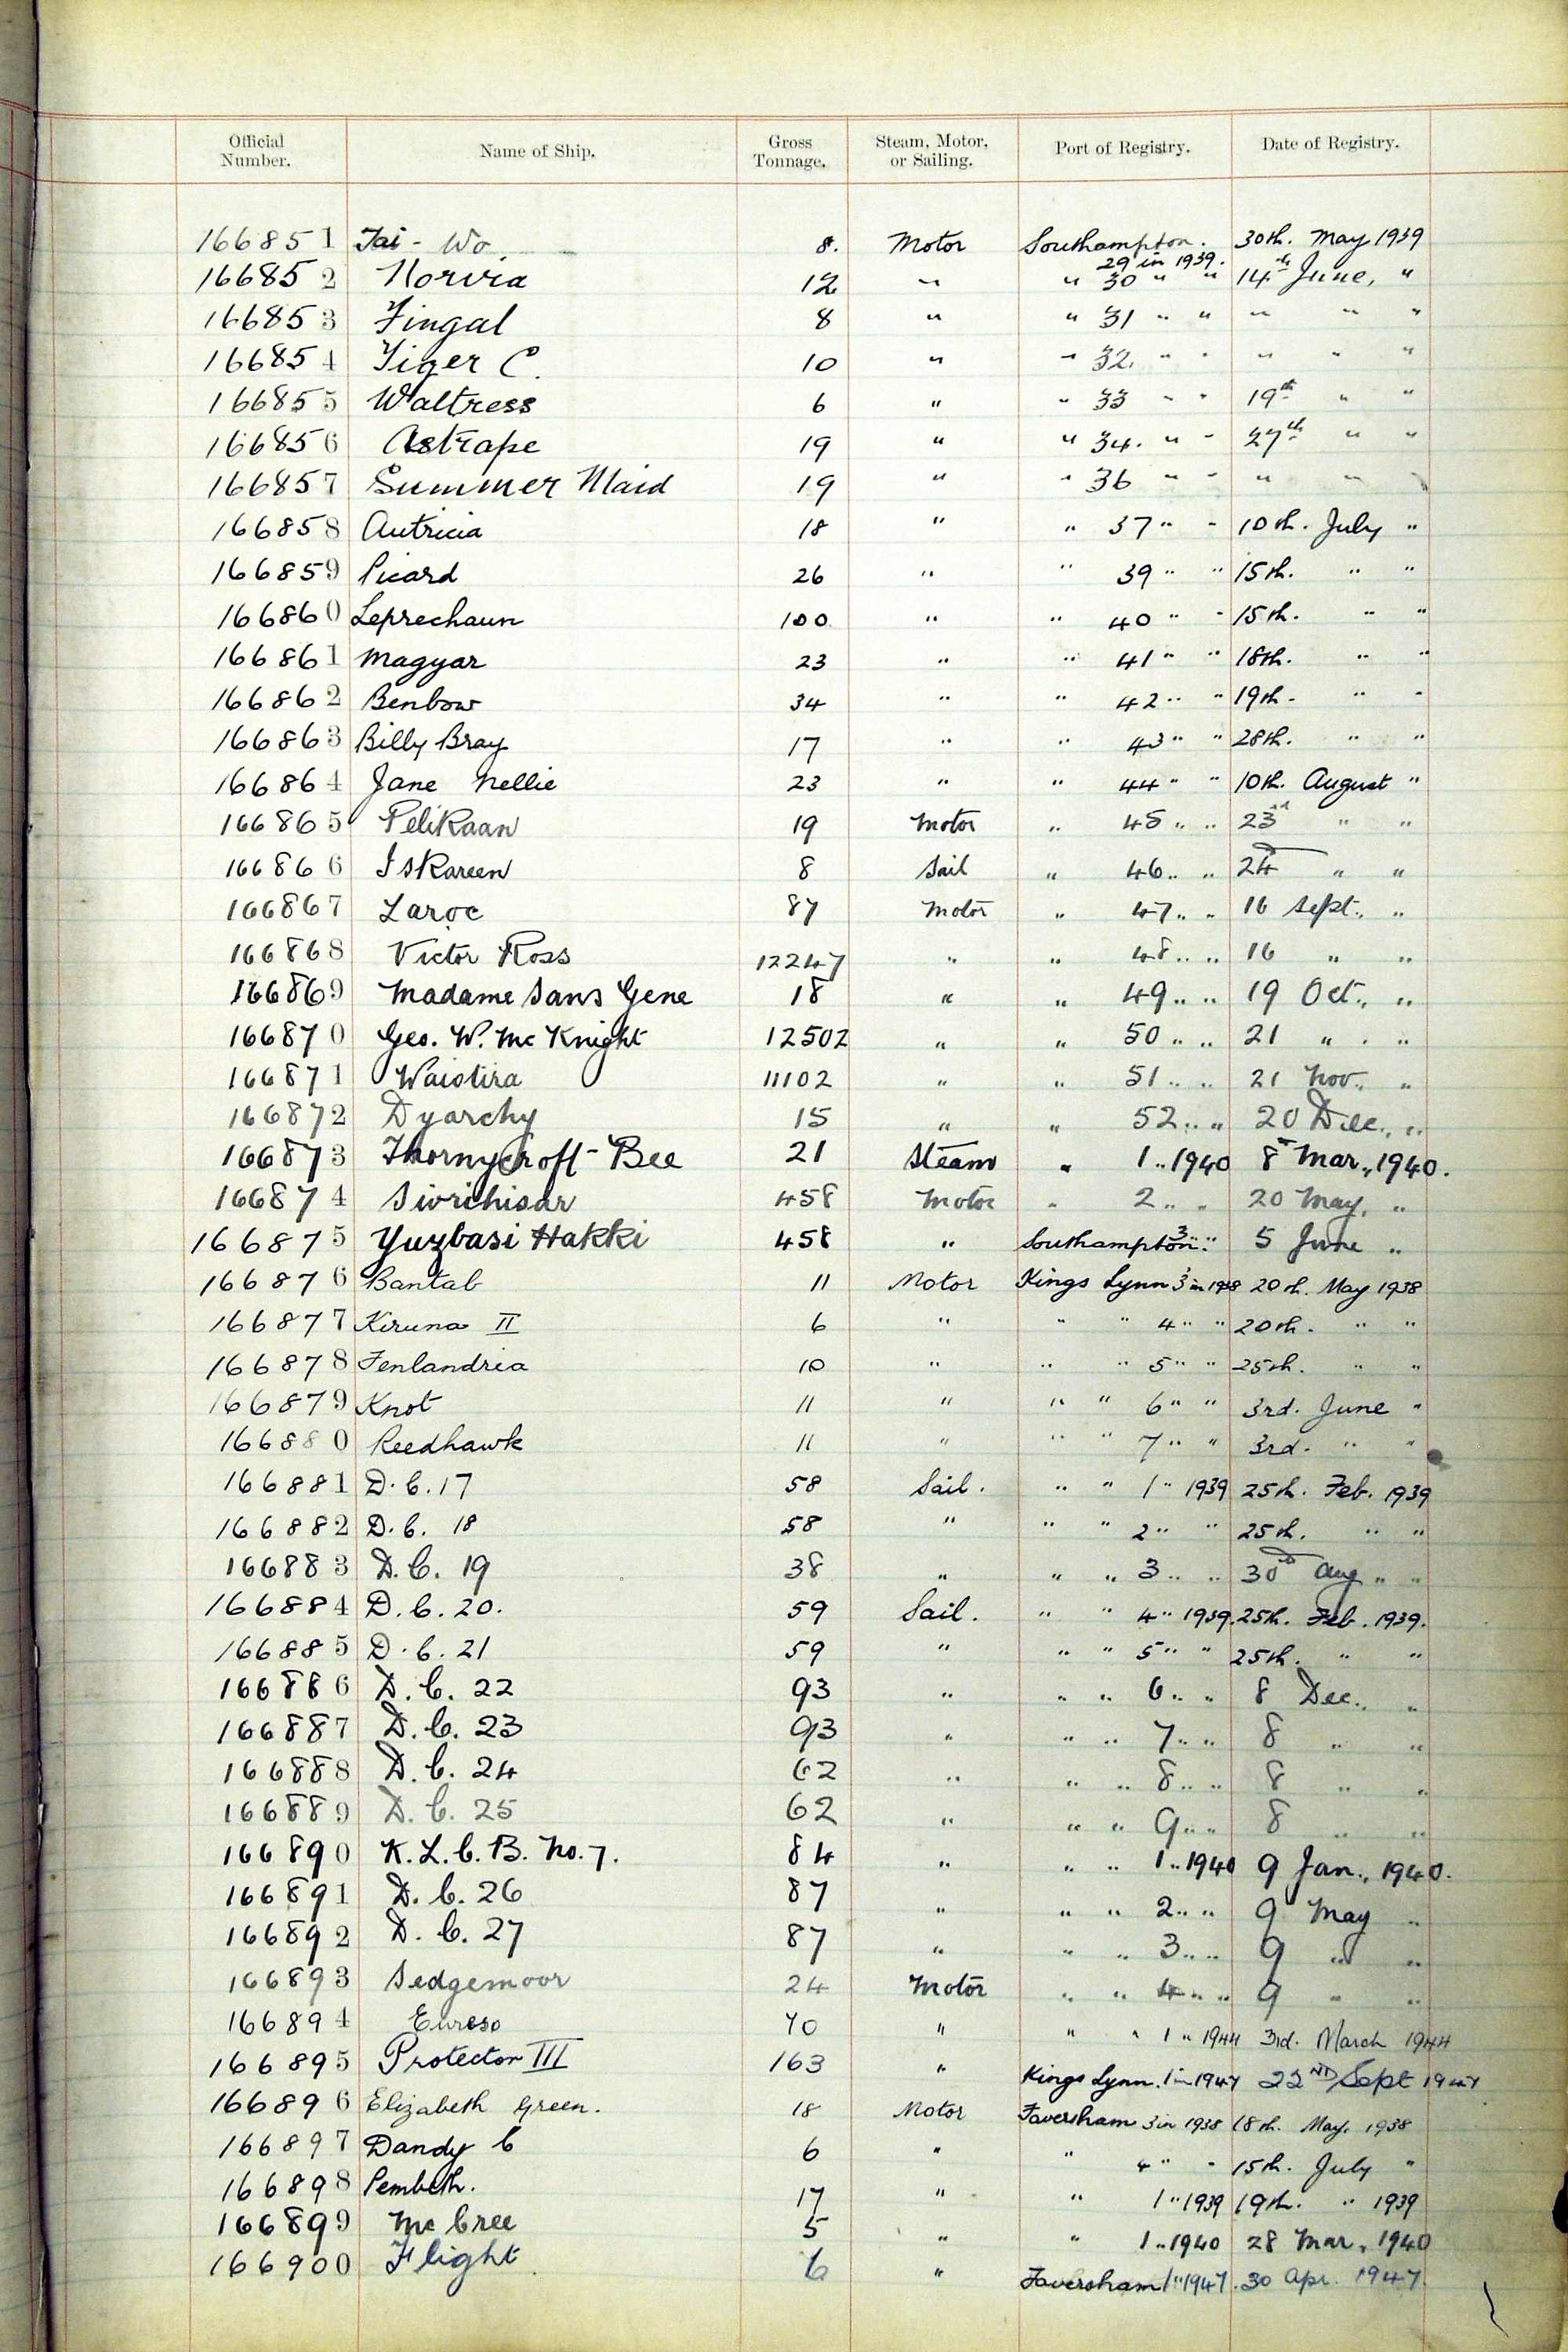 Official Number. Name of Ship. Gross Tonnage. Steam, Motor, or Sailing. Port of Registry. Date of Registry.
166851 Tai-Wo 8. Motor Southampton. 29 in 1939. 30th. May 1939
166852 Norvia 12 " " 30 " " 14th June, "
166853 Fingal 8 " " 31 " " " " "
166854 Tiger C. 10 " " 32. " " " " "
166855 Waltress 6 " " 33 " " 19th " "
166856 Astrape 19 " " 34. " " 27th " "
166857 Summer Maid 19 " " 36 " " " " "
166858 Autricia 18 " " 37 " " 10th. July "
166859 Picard 26 " " 39 " " 15th. " "
166860 Leprechaun 100 " " 40 " " 15th. " "
166861 Magyar 23 " " 41 " " 18th. " "
166862 Benbow 34 " " 42 " " 19th. " "
166863 Billy Bray 17 " " 43 " " 28th. " "
166864 Jane Nellie 23 " " 44 " " 10th. August "
166865 Pelikaan 19 Motor " 45 " " 23rd " "
166866 Iskareen 8 Sail " 46 " " 24th " "
166867 Laroc 87 Motor " 47 " " 16 Sept., "
166868 Victor Ross 12247 " " 48 " " 16 " "
166869 Madame Sans Gene 18 " " 49 " " 19 Oct., "
166870 Geo. W. Mc Knight 12502 " " 50 " " 21 " "
166871 Waiotira 11102 " " 51 " " 21 Nov., "
166872 Dyarchy 15 " " 52 " " 20 Dec., "
166873 Thornycroft-Bee 21 Steam " 1 " 1940 8 Mar., 1940.
166874 Sivrihisar 458 Motor " 2 " " 20 May, "
166875 Yuzbasi Hakki 458 " Southampton. 3 " " 5 June "
166876 Bantab 11 Motor Kings Lynn 3 in 1938 20th. May 1938
166877 Kiruna II 6 " " " 4 " " 20th. " "
166878 Fenlandria 10 " " " 5 " " 25th. " "
166879 Knot 11 " " " 6 " " 3rd. June "
166880 Reedhawk 11 " " " 7 " " 3rd. " "
166881 D.C. 17 58 Sail. " " 1 " 1939 25th. Feb. 1939
166882 D.C. 18 58 " " " 2 " " 25th. " "
166883 D.C. 19 38 " " " 3 " " 30th Aug " "
166884 D.C. 20. 59 Sail. " " 4 " 1939. 25th. Feb. 1939.
166885 D.C. 21 59 " " " 5 " " 25th. " "
166886 D.C. 22 93 " " " 6 " " 8 Dec., "
166887 D.C. 23 93 " " " 7 " " 8 " "
166888 D.C. 24 62 " " " 8 " " 8 " "
166889 D.C. 25 62 " " " 9 " " 8 " "
166890 K.L.C.B. No. 7. 84 " " " 1 " 1940 9 Jan., 1940.
166891 D.C. 26 87 " " " 2 " " 9 May "
166892 D.C. 27 87 " " " 3 " " 9 " "
166893 Sedgemoor 24 Motor " " 4 " " 9 " "
166894 Eureso 70 " " " 1 " 1944 3rd. March 1944
166895 Protector III 163 " Kings Lynn. 1 in 1947 22ND Sept 1947
166896 Elizabeth Green. 18 Motor Faversham 3 in 1938 18th. May. 1938
166897 Dandy C 6 " " 4 " " 15th. July "
166898 Pembeth. 17 " " 1 " 1939 19th. " 1939
166899 Mc Cree 5 " " 1 " 1940 28 Mar, 1940
166900 Flight 6 " Faversham 1 " 1947. 30 Apr. 1947.